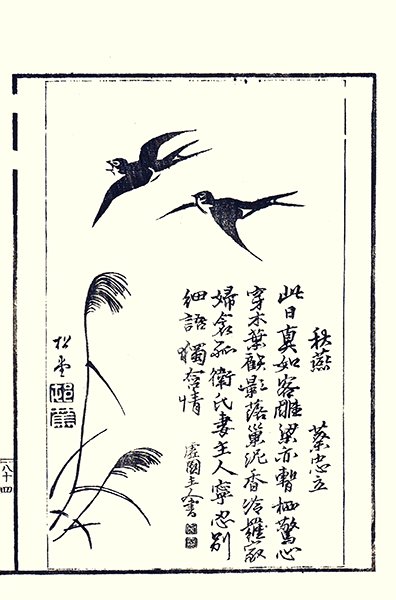 秋燕　蔡忠立
此日真如客雕梁亦暫栖驚心
穿木葉顧影落巢泥香冷家
婦名孤衛氏妻主人寧忍別
細語獨含情
主人書
松
八十四